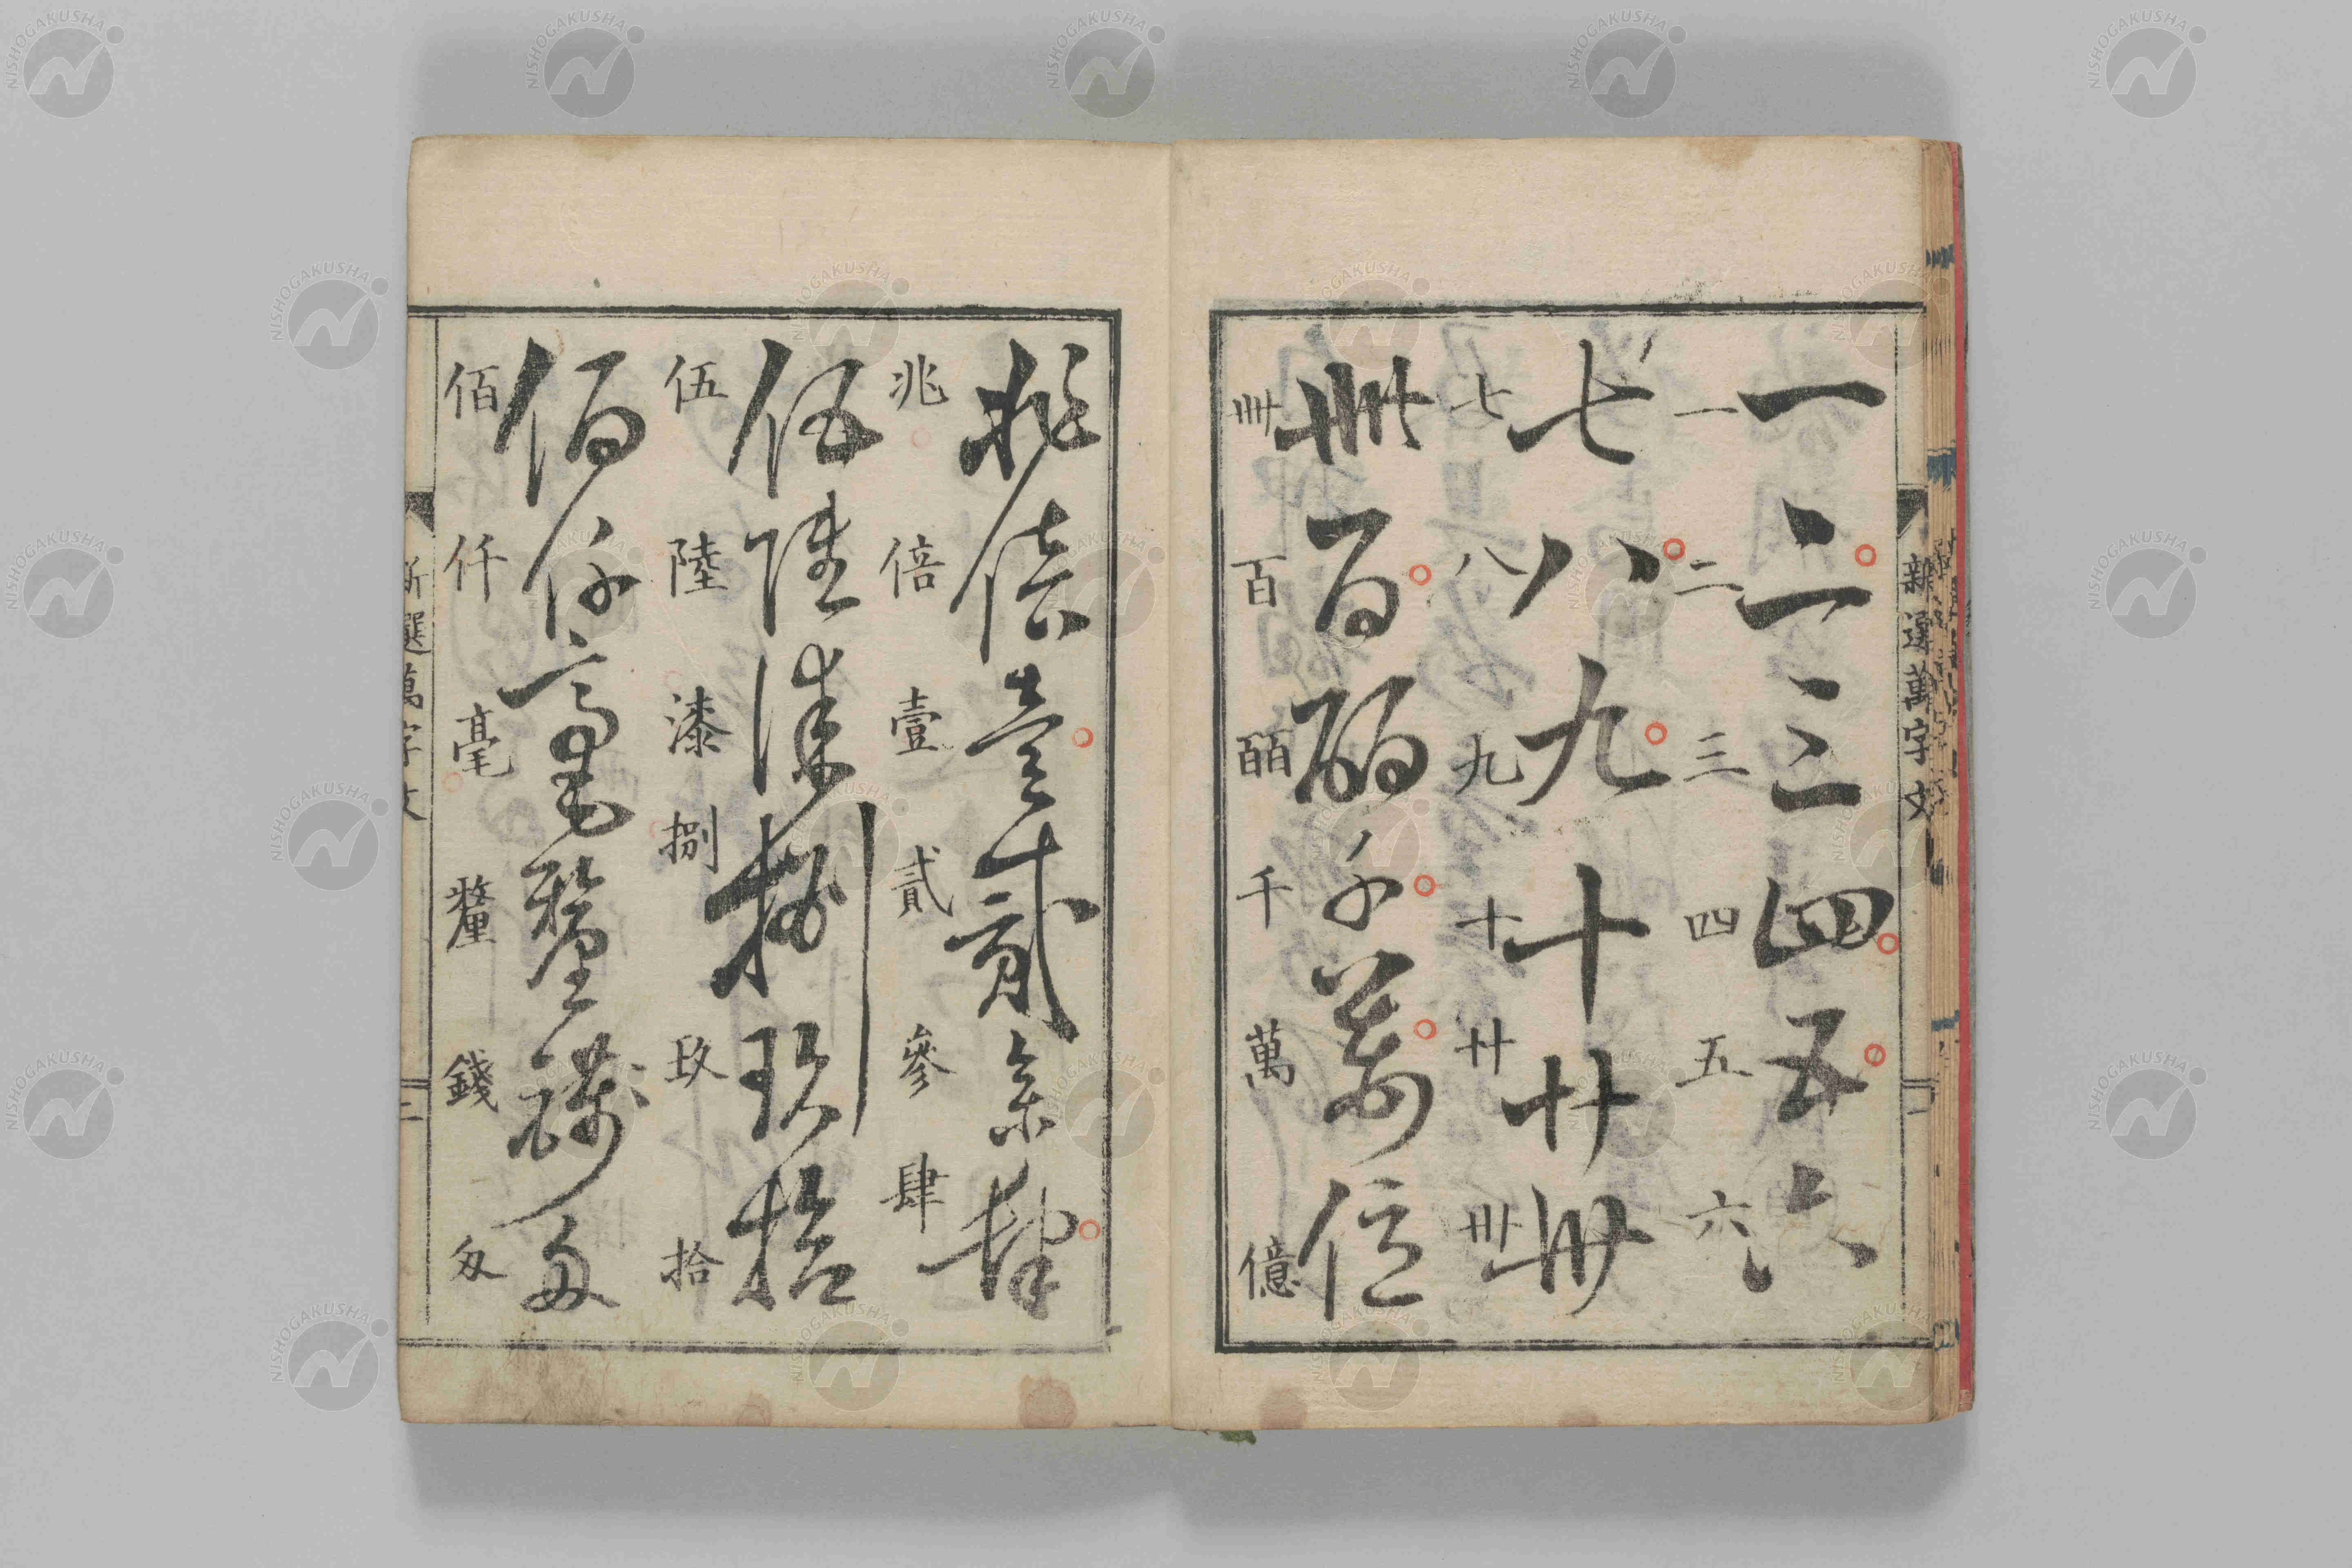 新選萬字文
一二三四五六
一二三四五六
七八九十廿卅
七八九十廿卅
卌百皕千萬億
卌百皕千萬億
兆倍壹貳參肆
兆倍壹貳參肆
伍陸漆捌玖拾
伍陸漆捌玖拾
佰仟毫釐錢匁
佰仟毫釐錢匁
新選萬字文
二
NISHOGAKUSHA